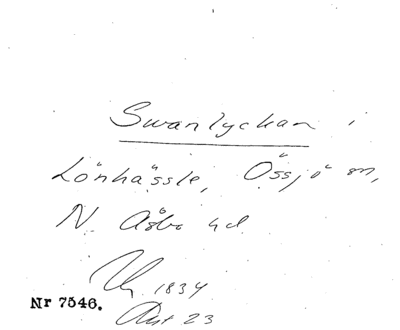 Swanlyckan i
Lönhässle, Össjö sn,
N. Åsbo hd
1834
Nr 7546.
23